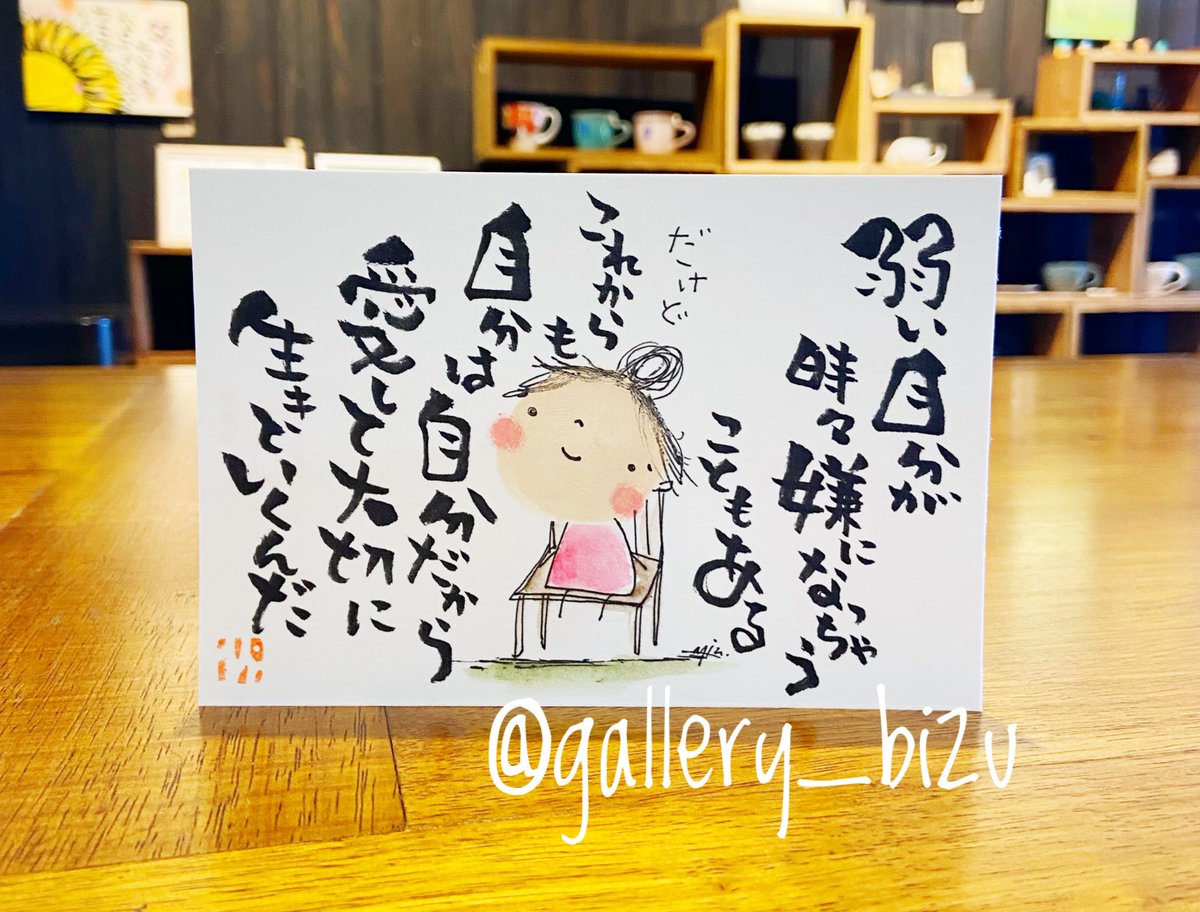 弱い自分が
時々嫌になっちゃう
こともある
だけど
これからも
自分は自分だから
愛して大切に
生きていくんだ
@gallery_bizu